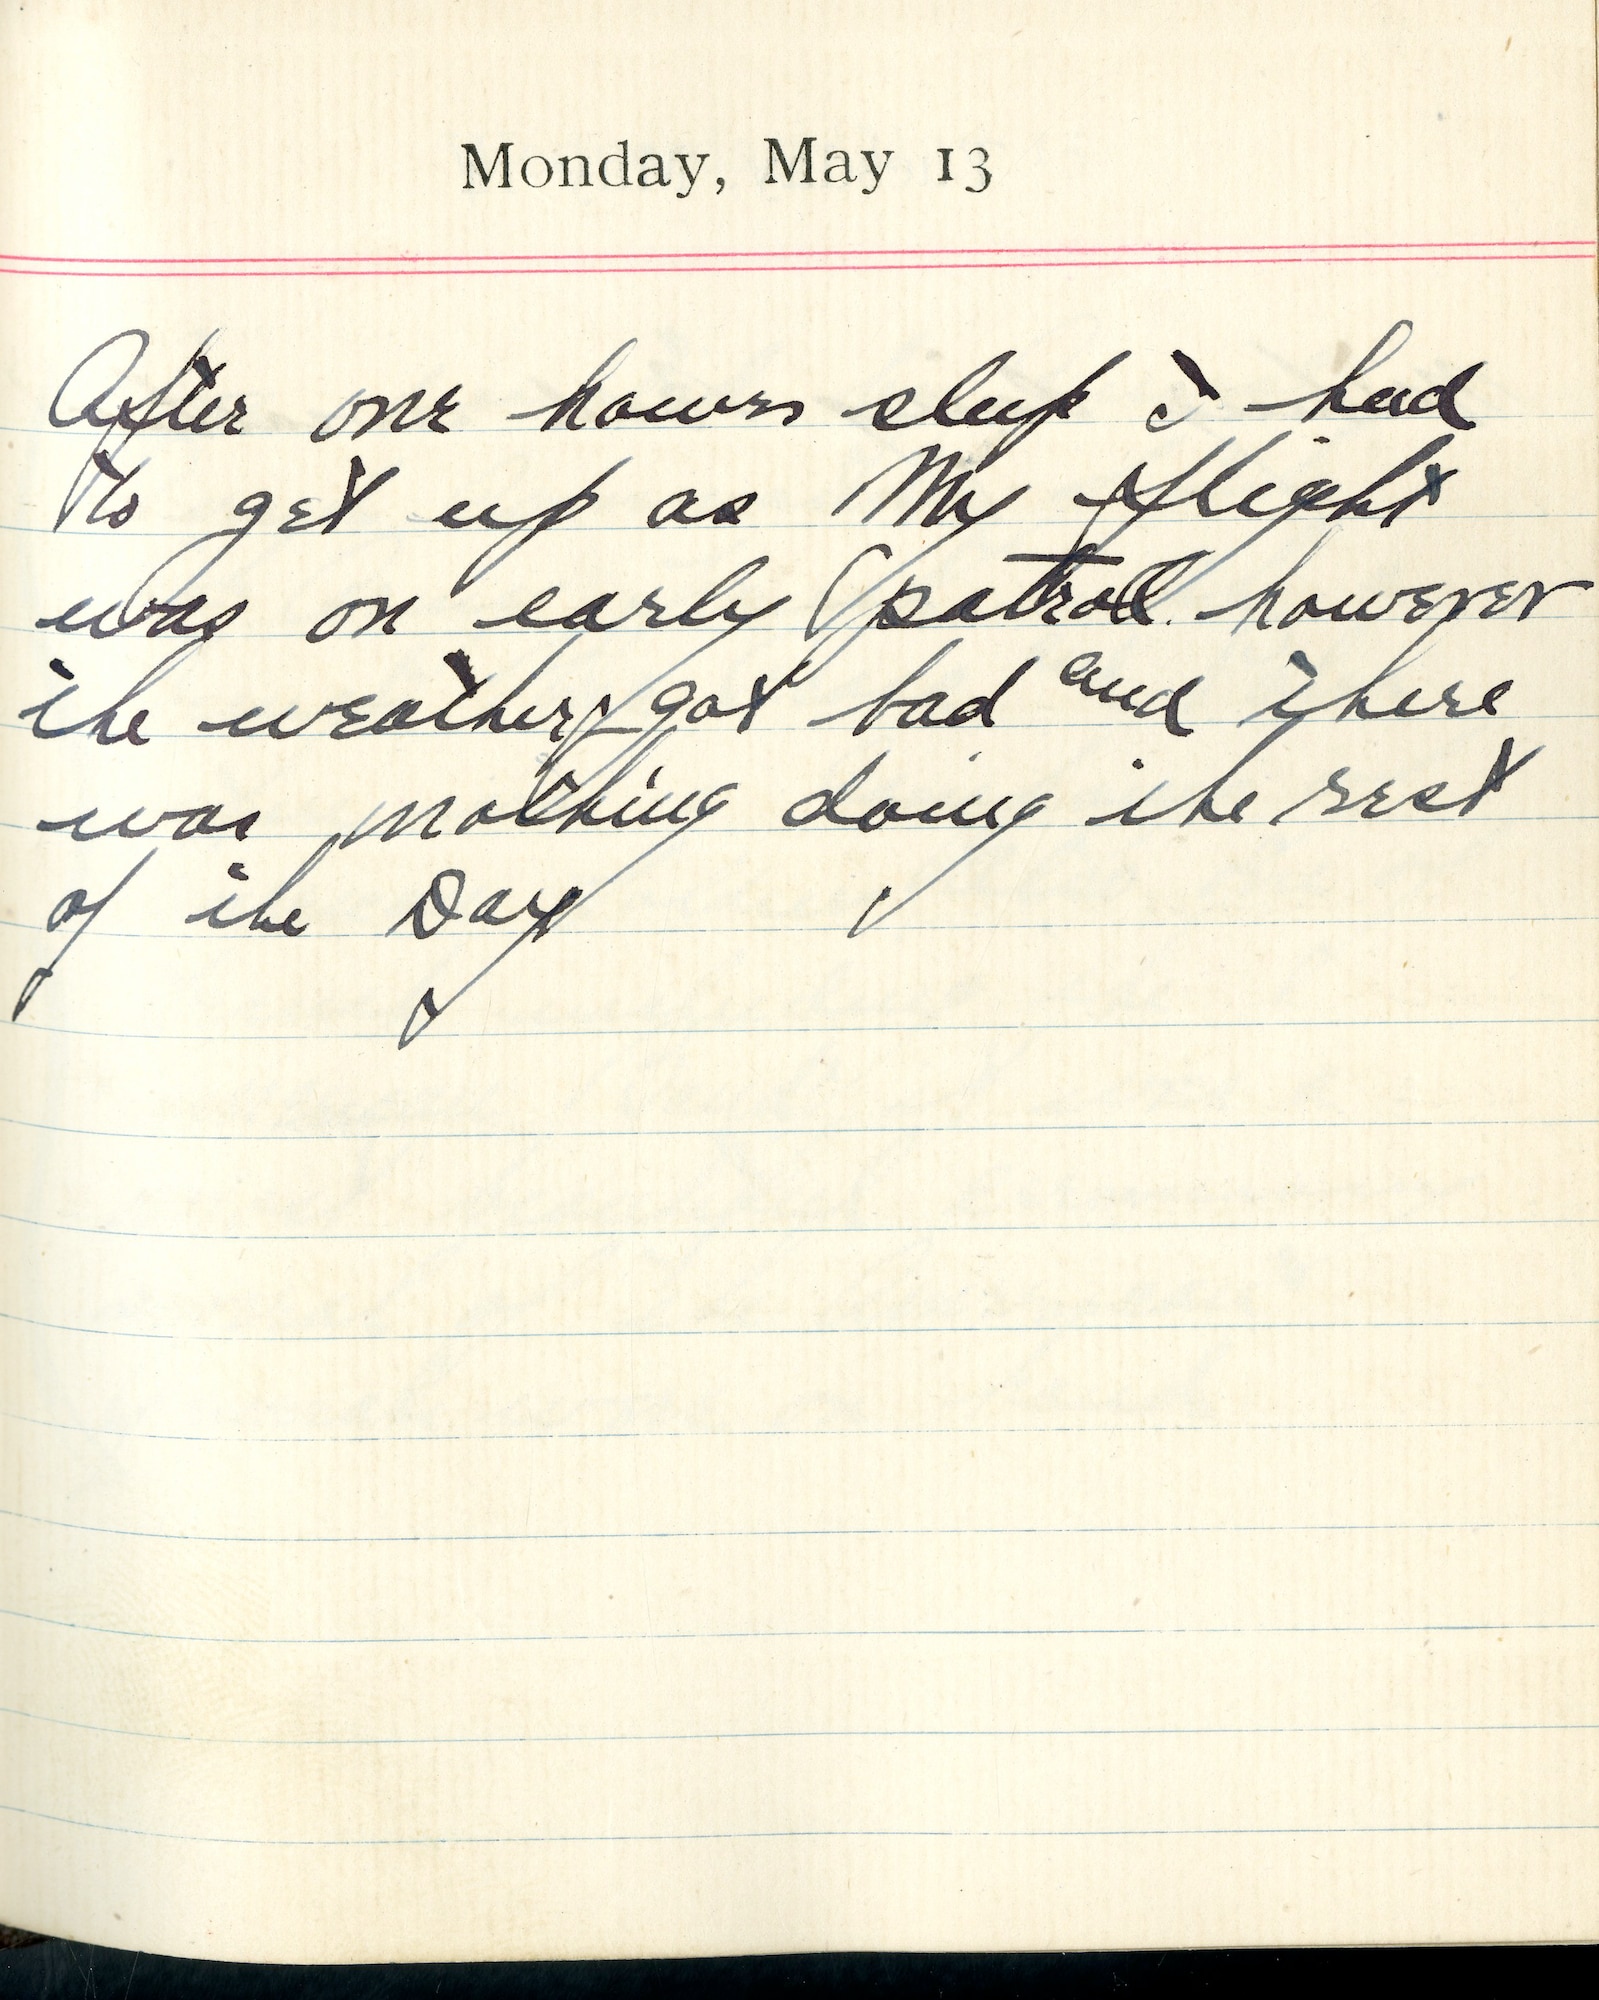 Monday, May 13
After one hours sleep I had
to get up as My flight
was on early patrol. however
the weather got bad and there
was nothing doing the rest
of the Day